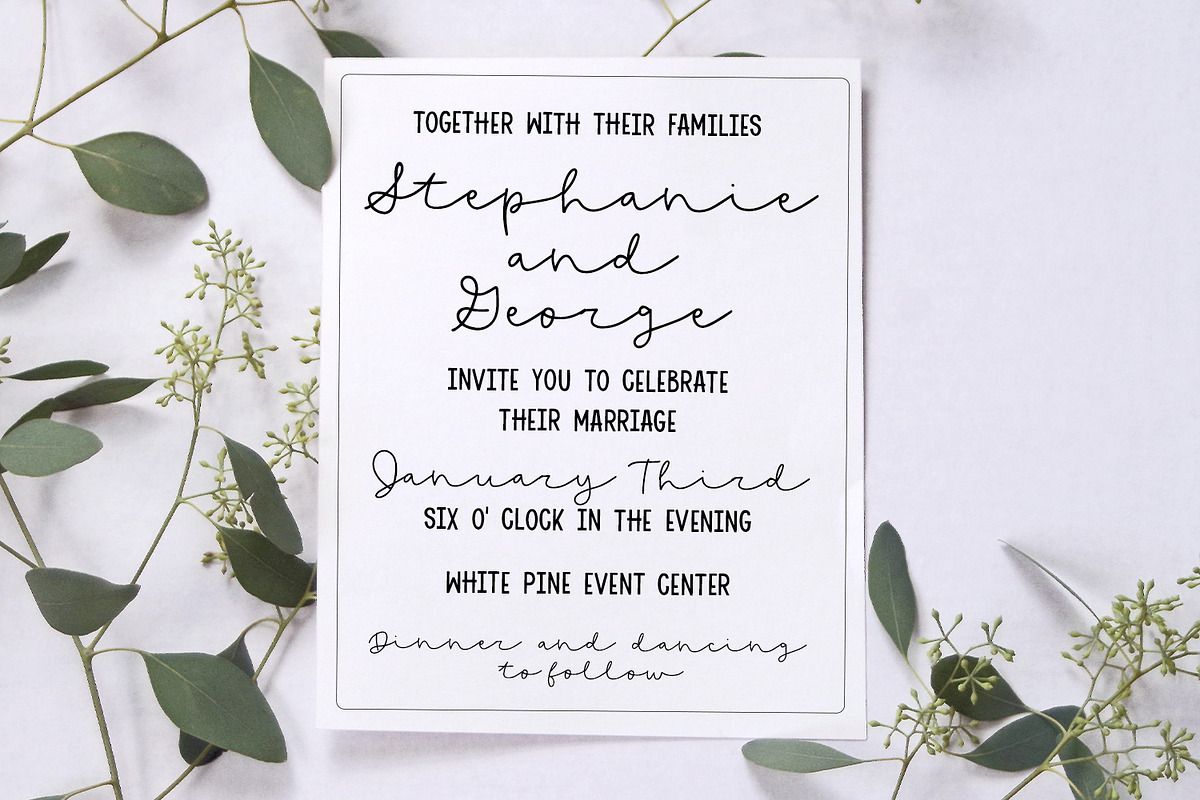 TOGETHER WITH THEIR FAMILIES
Stephanie
and
George
INVITE YOU TO CELEBRATE
THEIR MARRIAGE
January Third
SIX O' CLOCK IN THE EVENING
WHITE PINE EVENT CENTER
Dinner and dancing
to follow